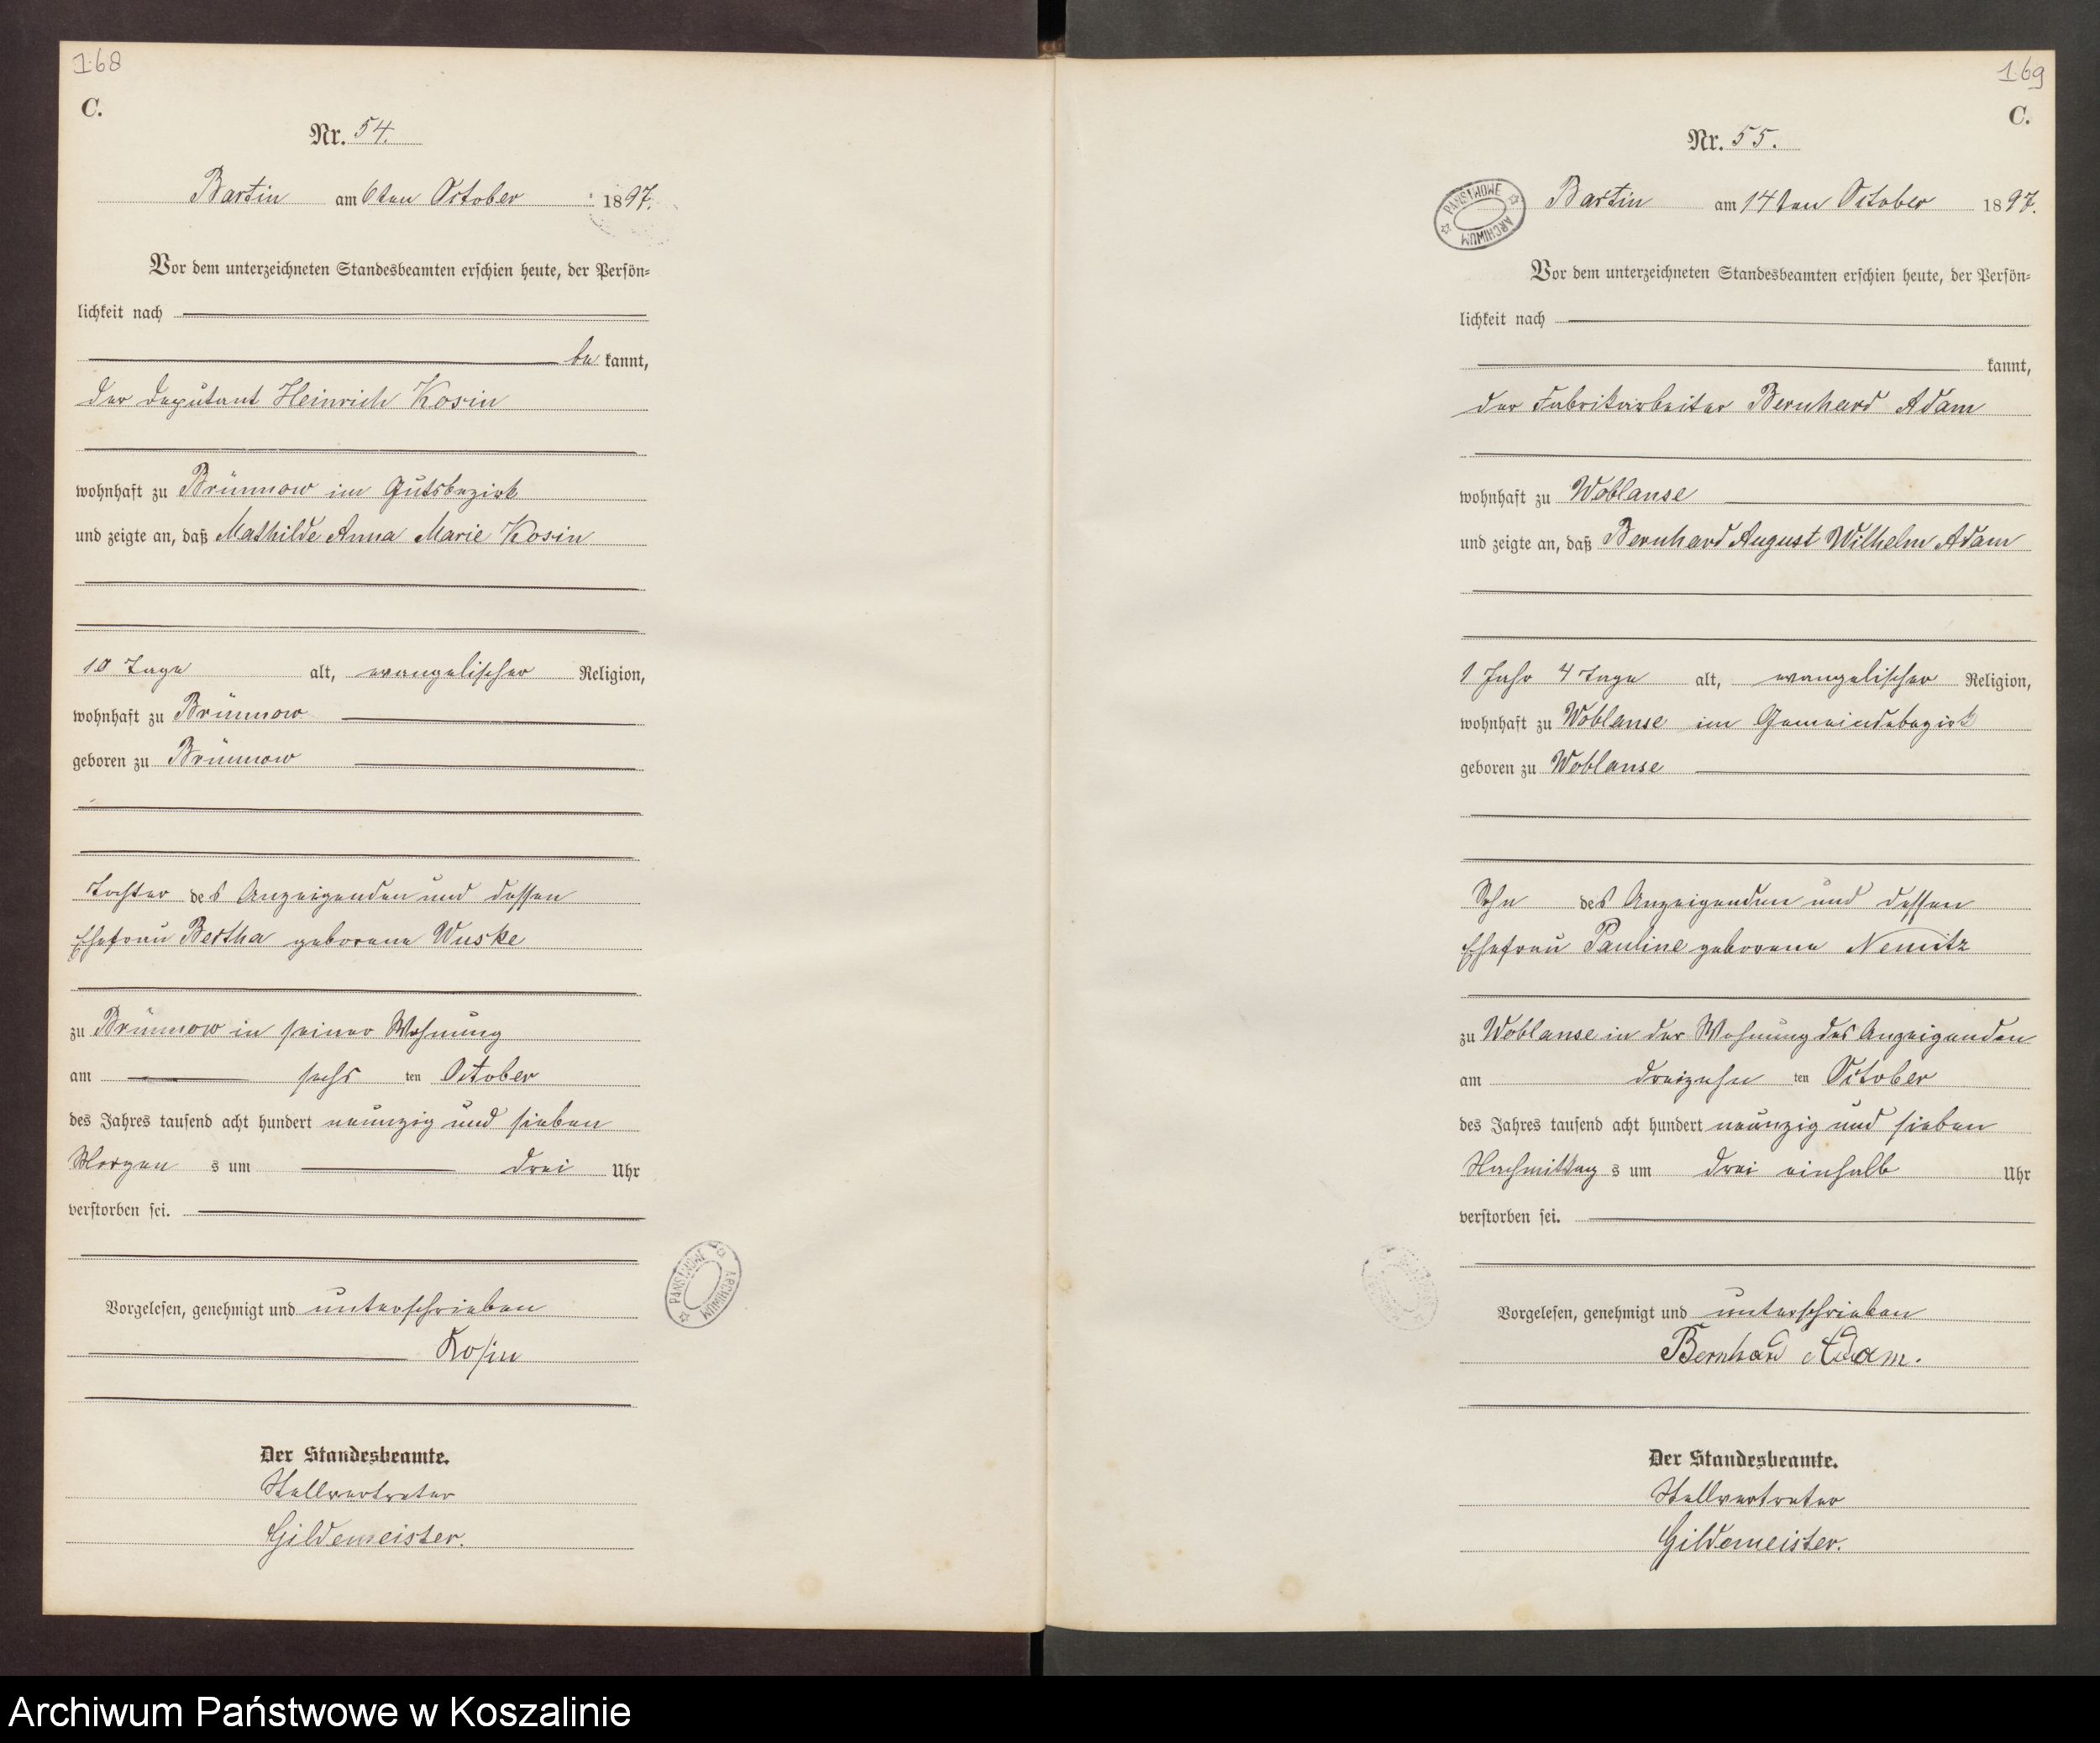 168
C.
Nr. 54.
Bartin am 6ten October 1897.
Vor dem unterzeichneten Standesbeamten erschien heute, der Persön=
lichkeit nach
be kannt,
der Deputant Heinrich Kosin
wohnhaft zu Brünnow im Gutsbezirk
und zeigte an, daß Mathilde Anna Marie Kosin
10 Tage alt, evangelischer Religion,
wohnhaft zu Brünnow
geboren zu Brünnow
Tochter des Anzeigenden und dessen
Ehefrau Bertha geborene Wuske
zu Brünnow in seiner Wohnung
am sechs ten October
des Jahres tausend acht hundert neunzig und sieben
Morgen s um drei Uhr
verstorben sei.
Vorgelesen, genehmigt und unterschrieben
Kosin
Der Standesbeamte.
Stellvertreter
Gildemeister.
PAŃSTWOWE ARCHIWUM
169
C.
Nr. 55.
PAŃSTWOWE ARCHIWUM
Bartin am 14ten October 1897.
Vor dem unterzeichneten Standesbeamten erschien heute, der Persön=
lichkeit nach
kannt,
der Fabrikarbeiter Bernhard Adam
wohnhaft zu Woblanse
und zeigte an, daß Bernhard August Wilhelm Adam
1 Jahr 4 Tage alt, evangelischer Religion,
wohnhaft zu Woblanse im Gemeindebezirk
geboren zu Woblanse
Sohn des Anzeigenden und dessen
Ehefrau Pauline geborene Nemitz
zu Woblanse in der Wohnung des Anzeigenden
am dreizehn ten October
des Jahres tausend acht hundert neunzig und sieben
Nachmittag s um drei einhalb Uhr
verstorben sei.
Vorgelesen, genehmigt und unterschrieben
Bernhard Adam.
Der Standesbeamte.
Stellvertreter
Gildemeister.
Archiwum Państwowe w Koszalinie